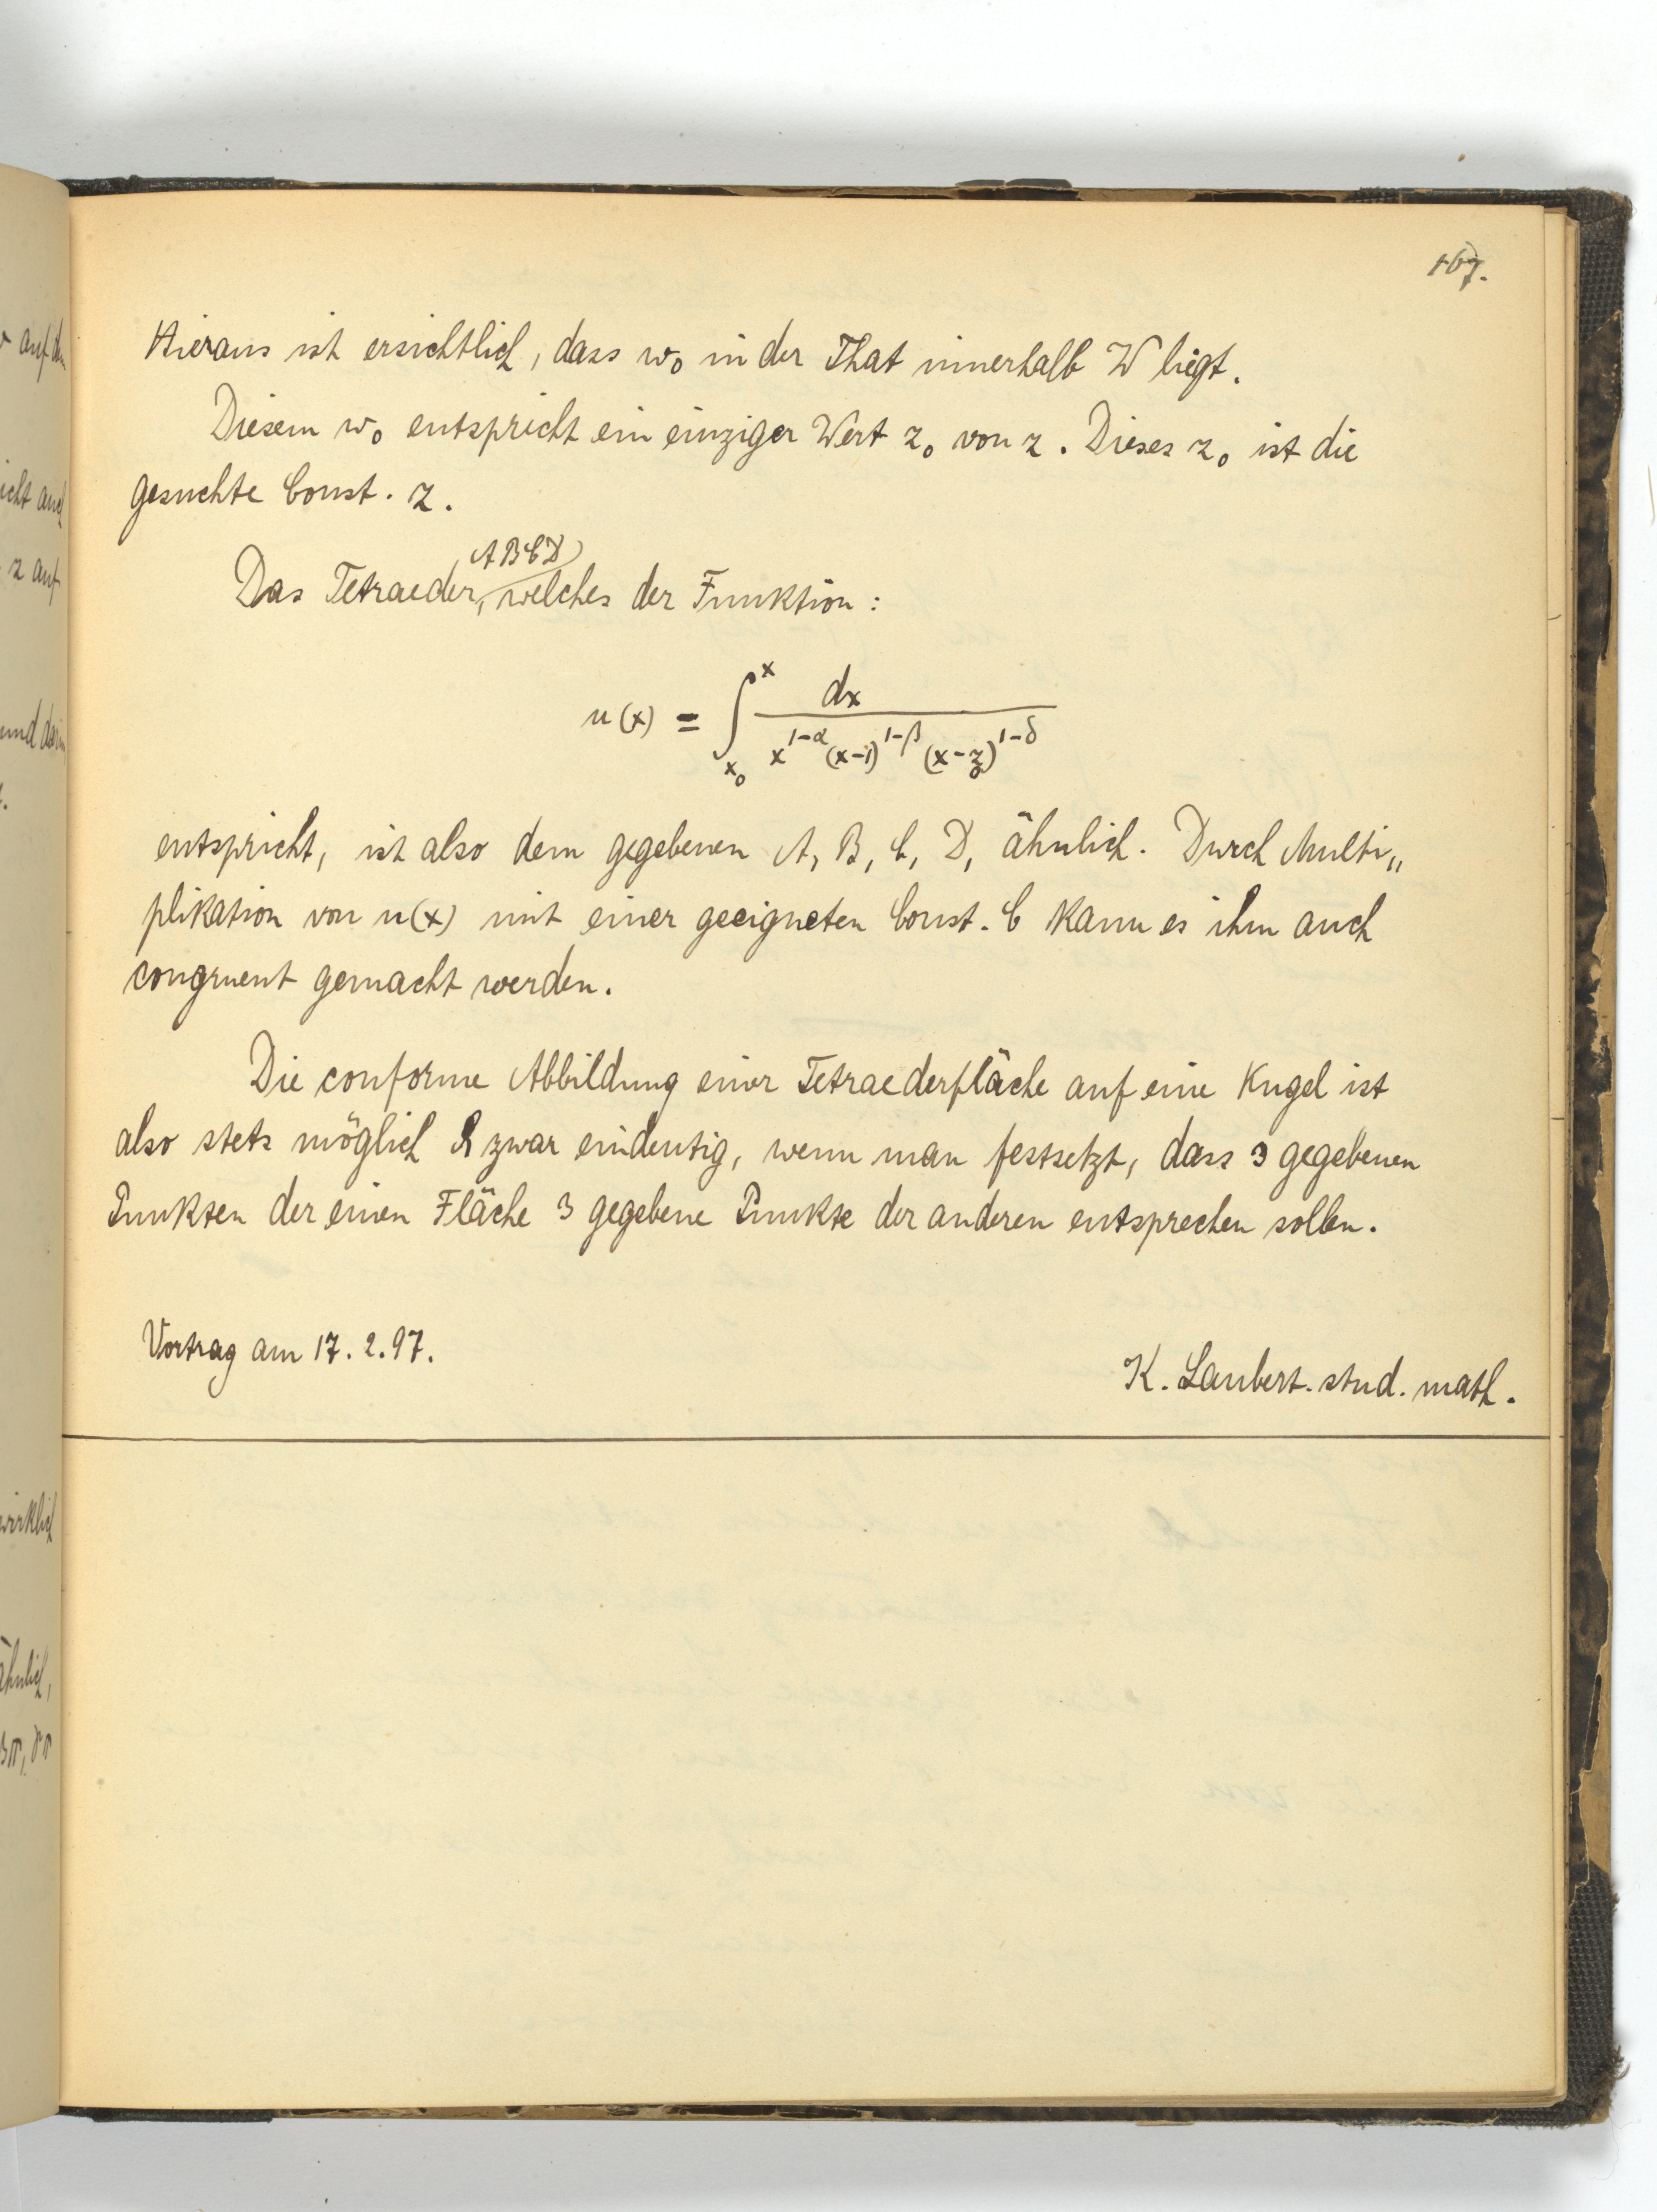 167.
Hieraus ist ersichtlich, dass w₀ in der That innerhalb W liegt.
Diesem w₀ entspricht ein einziger Wert z₀ von z. Dieses z₀ ist die
gesuchte Const. z.
Das Tetraeder, ABCD welches der Funktion:
u(x) = ∫_{x₀}^{x} dx / (x^{1-α} (x-1)^{1-β} (x-z₀)^{1-δ})
entspricht, ist also dem gegebenen A, B, C, D, ähnlich. Durch Multi„
plikation von u(x) mit einer geeigneten Const. C kann es ihm auch
congruent gemacht werden.
Die conforme Abbildung einer Tetraederfläche auf eine Kugel ist
also stets möglich & zwar eindeutig, wenn man festsetzt, dass 3 gegebenen
Punkten der einen Fläche 3 gegebene Punkte der anderen entsprechen sollen.
Vortrag am 17. 2. 97.
K. Laubert. stud. math.
auf den
nicht auch
z auf
und darin
wirklich
ähnlich,